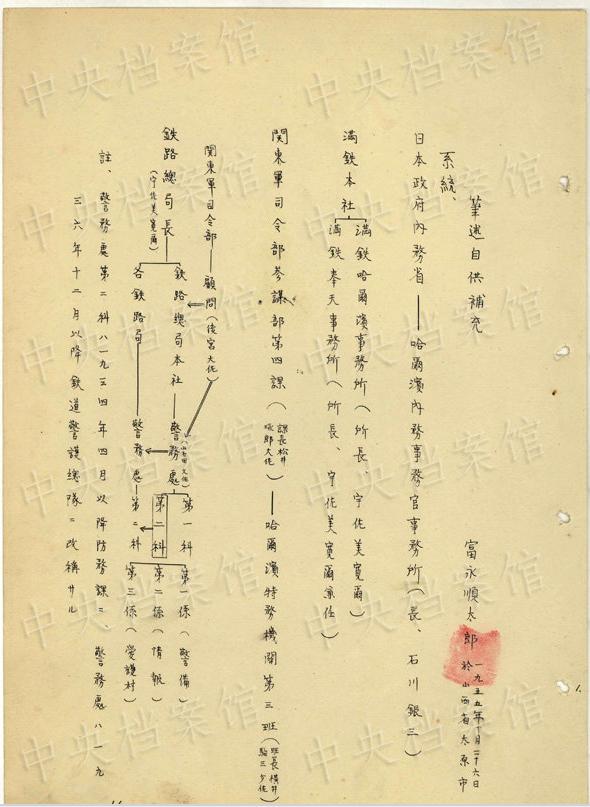 筆述自供補充
富永順太郎
一九五五年十月二十六日
於山西省太原市
系統、
日本政府内務省——哈爾濱内務事務官事務所(長、石川銀三)
満鉄本社
満鉄哈爾濱事務所(所長、宇佐美寛爾)
満鉄奉天事務所(所長、宇佐美寛爾兼任)
関東軍司令部参謀部第四課(課長松井 大佐)——哈爾濱特務機関第三班(班長横井 少佐)
関東軍司令部——顧問(後宮大佐)
鉄路總局長
(宇佐美寛爾)
鉄路總局本社——警務處
各鉄路局——警務處
第一科
第二科
第二科
第一係(警備)
第二係(情報)
第三係(愛護村)
註、警務處第二科ハ一九三四年四月以降防務課ニ、警務處ハ一九
三六年十二月以降鉄道警護總隊ニ改稱サル
中央档案馆